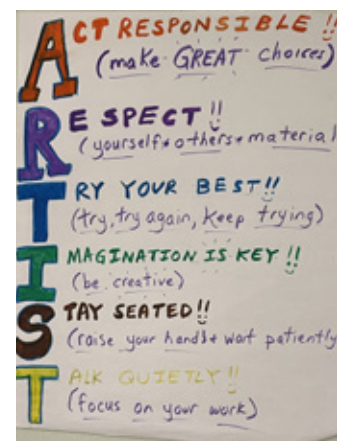 ACT RESPONSIBLE!!
(make GREAT choices)
RESPECT!!
(yourself + others + material
TRY YOUR BEST!!
(try, try again, keep trying)
IMAGINATION IS KEY!!
(be creative)
STAY SEATED!!
(raise your hand + wait patiently
TALK QUIETLY!!
(focus on your work)